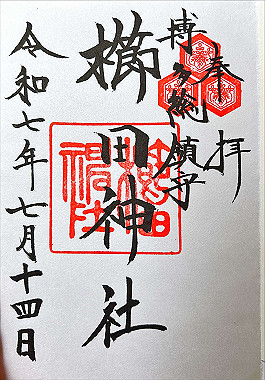 奉拝
博多総鎮守
櫛田神社
令和七年七月十四日